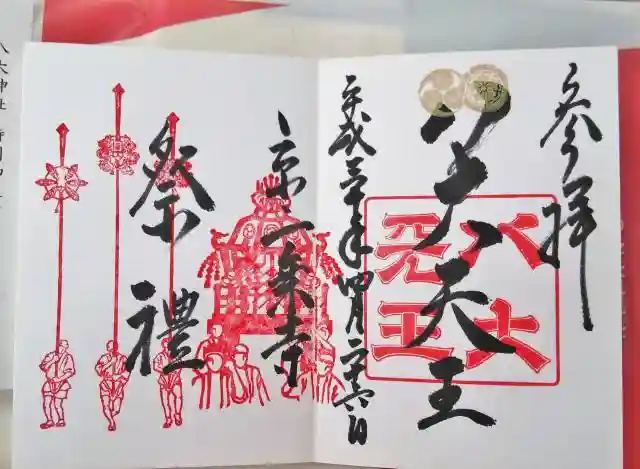 参拝
八大天王
八大天王
平成三十年四月二十六日
京一乗寺
祭禮
八大神社